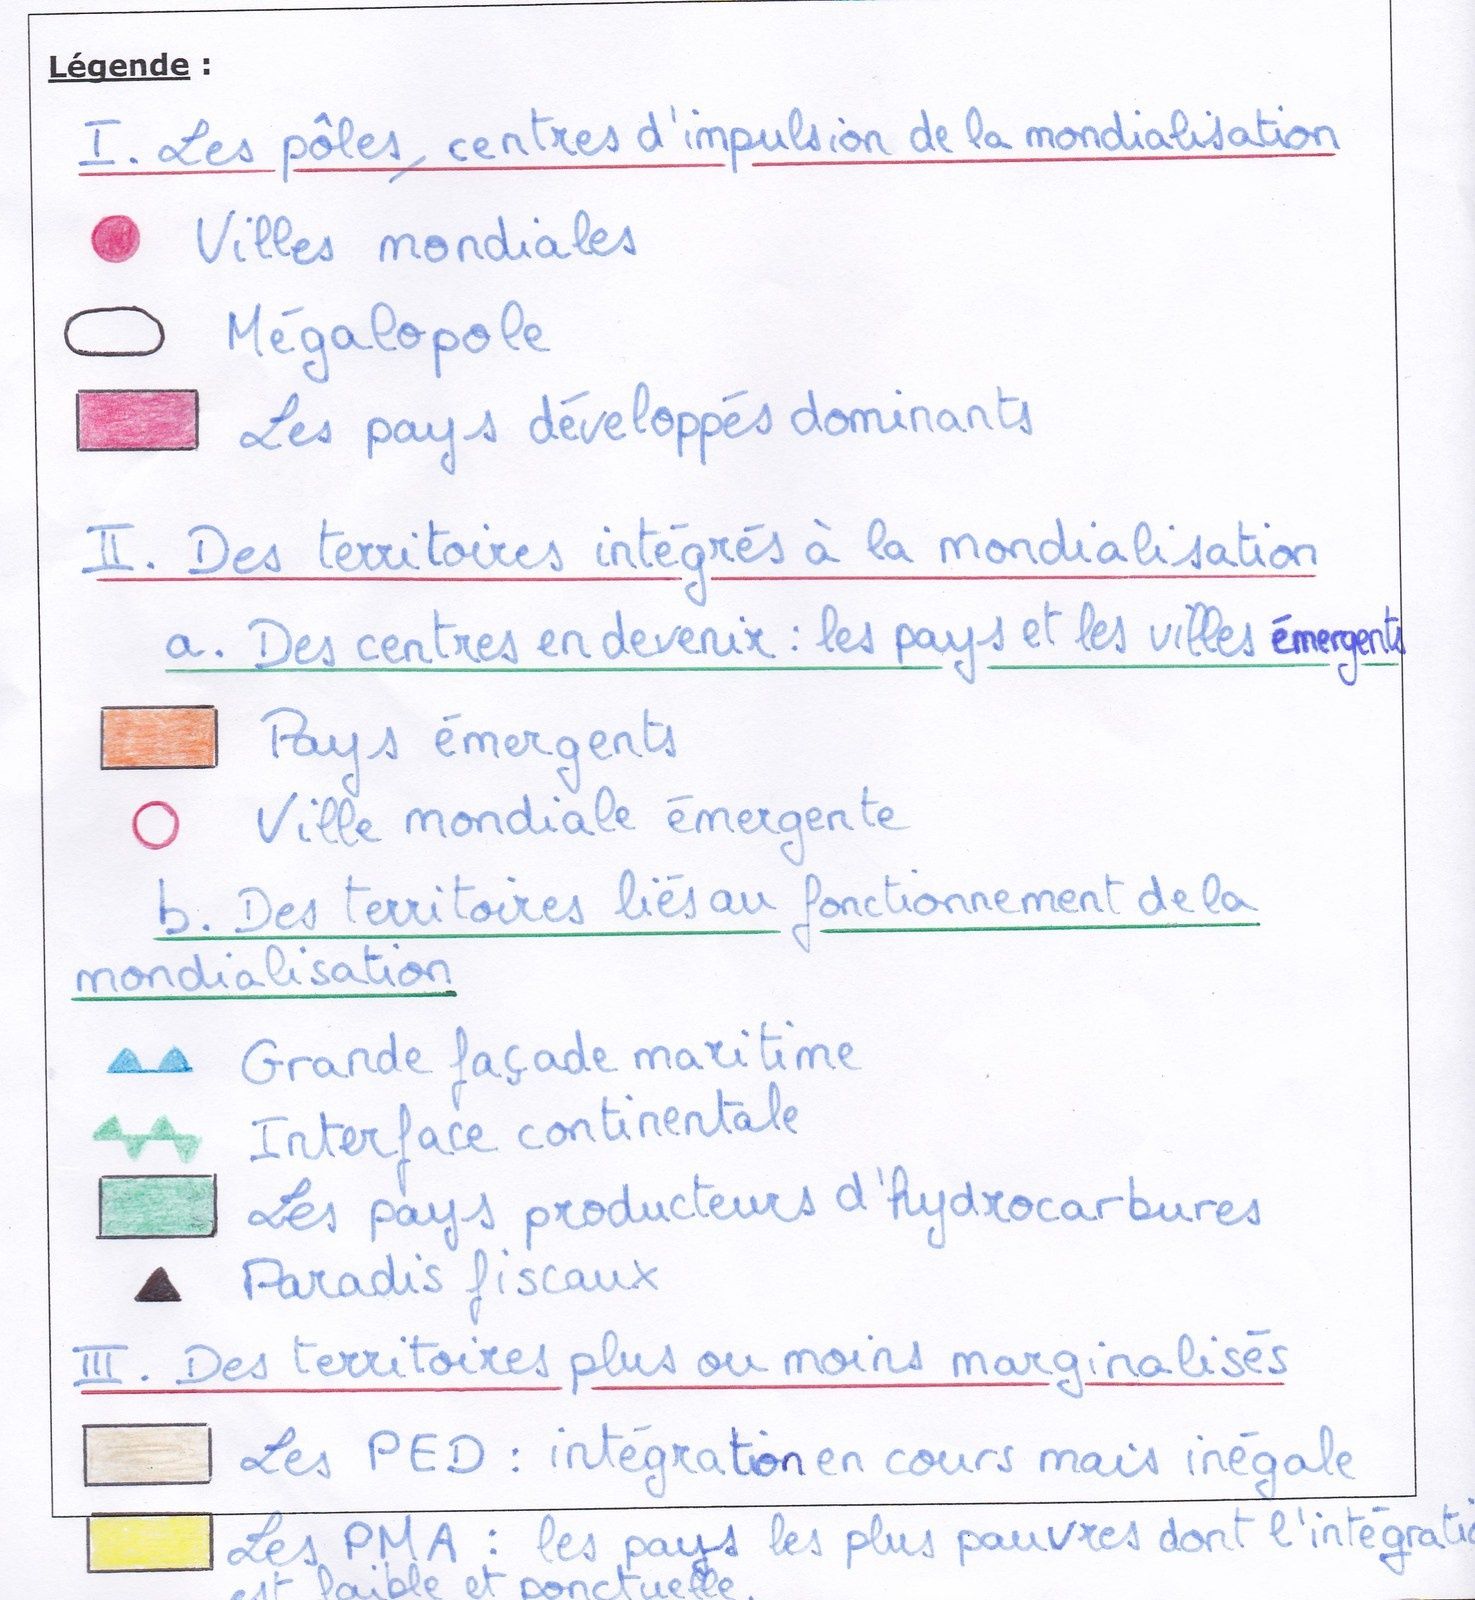 Légende :
I. Les pôles, centres d'impulsion de la mondialisation
Villes mondiales
Mégalopole
Les pays développés dominants
II. Des territoires intégrés à la mondialisation
a. Des centres en devenir : les pays et les villes émergents
Pays émergents
Ville mondiale émergente
b. Des territoires liés au fonctionnement de la
mondialisation
Grande façade maritime
Interface continentale
Les pays producteurs d'hydrocarbures
Paradis fiscaux
III. Des territoires plus ou moins marginalisés
Les PED : intégration en cours mais inégale
Les PMA : les pays les plus pauvres dont l'intégratio
est faible et ponctuelle.